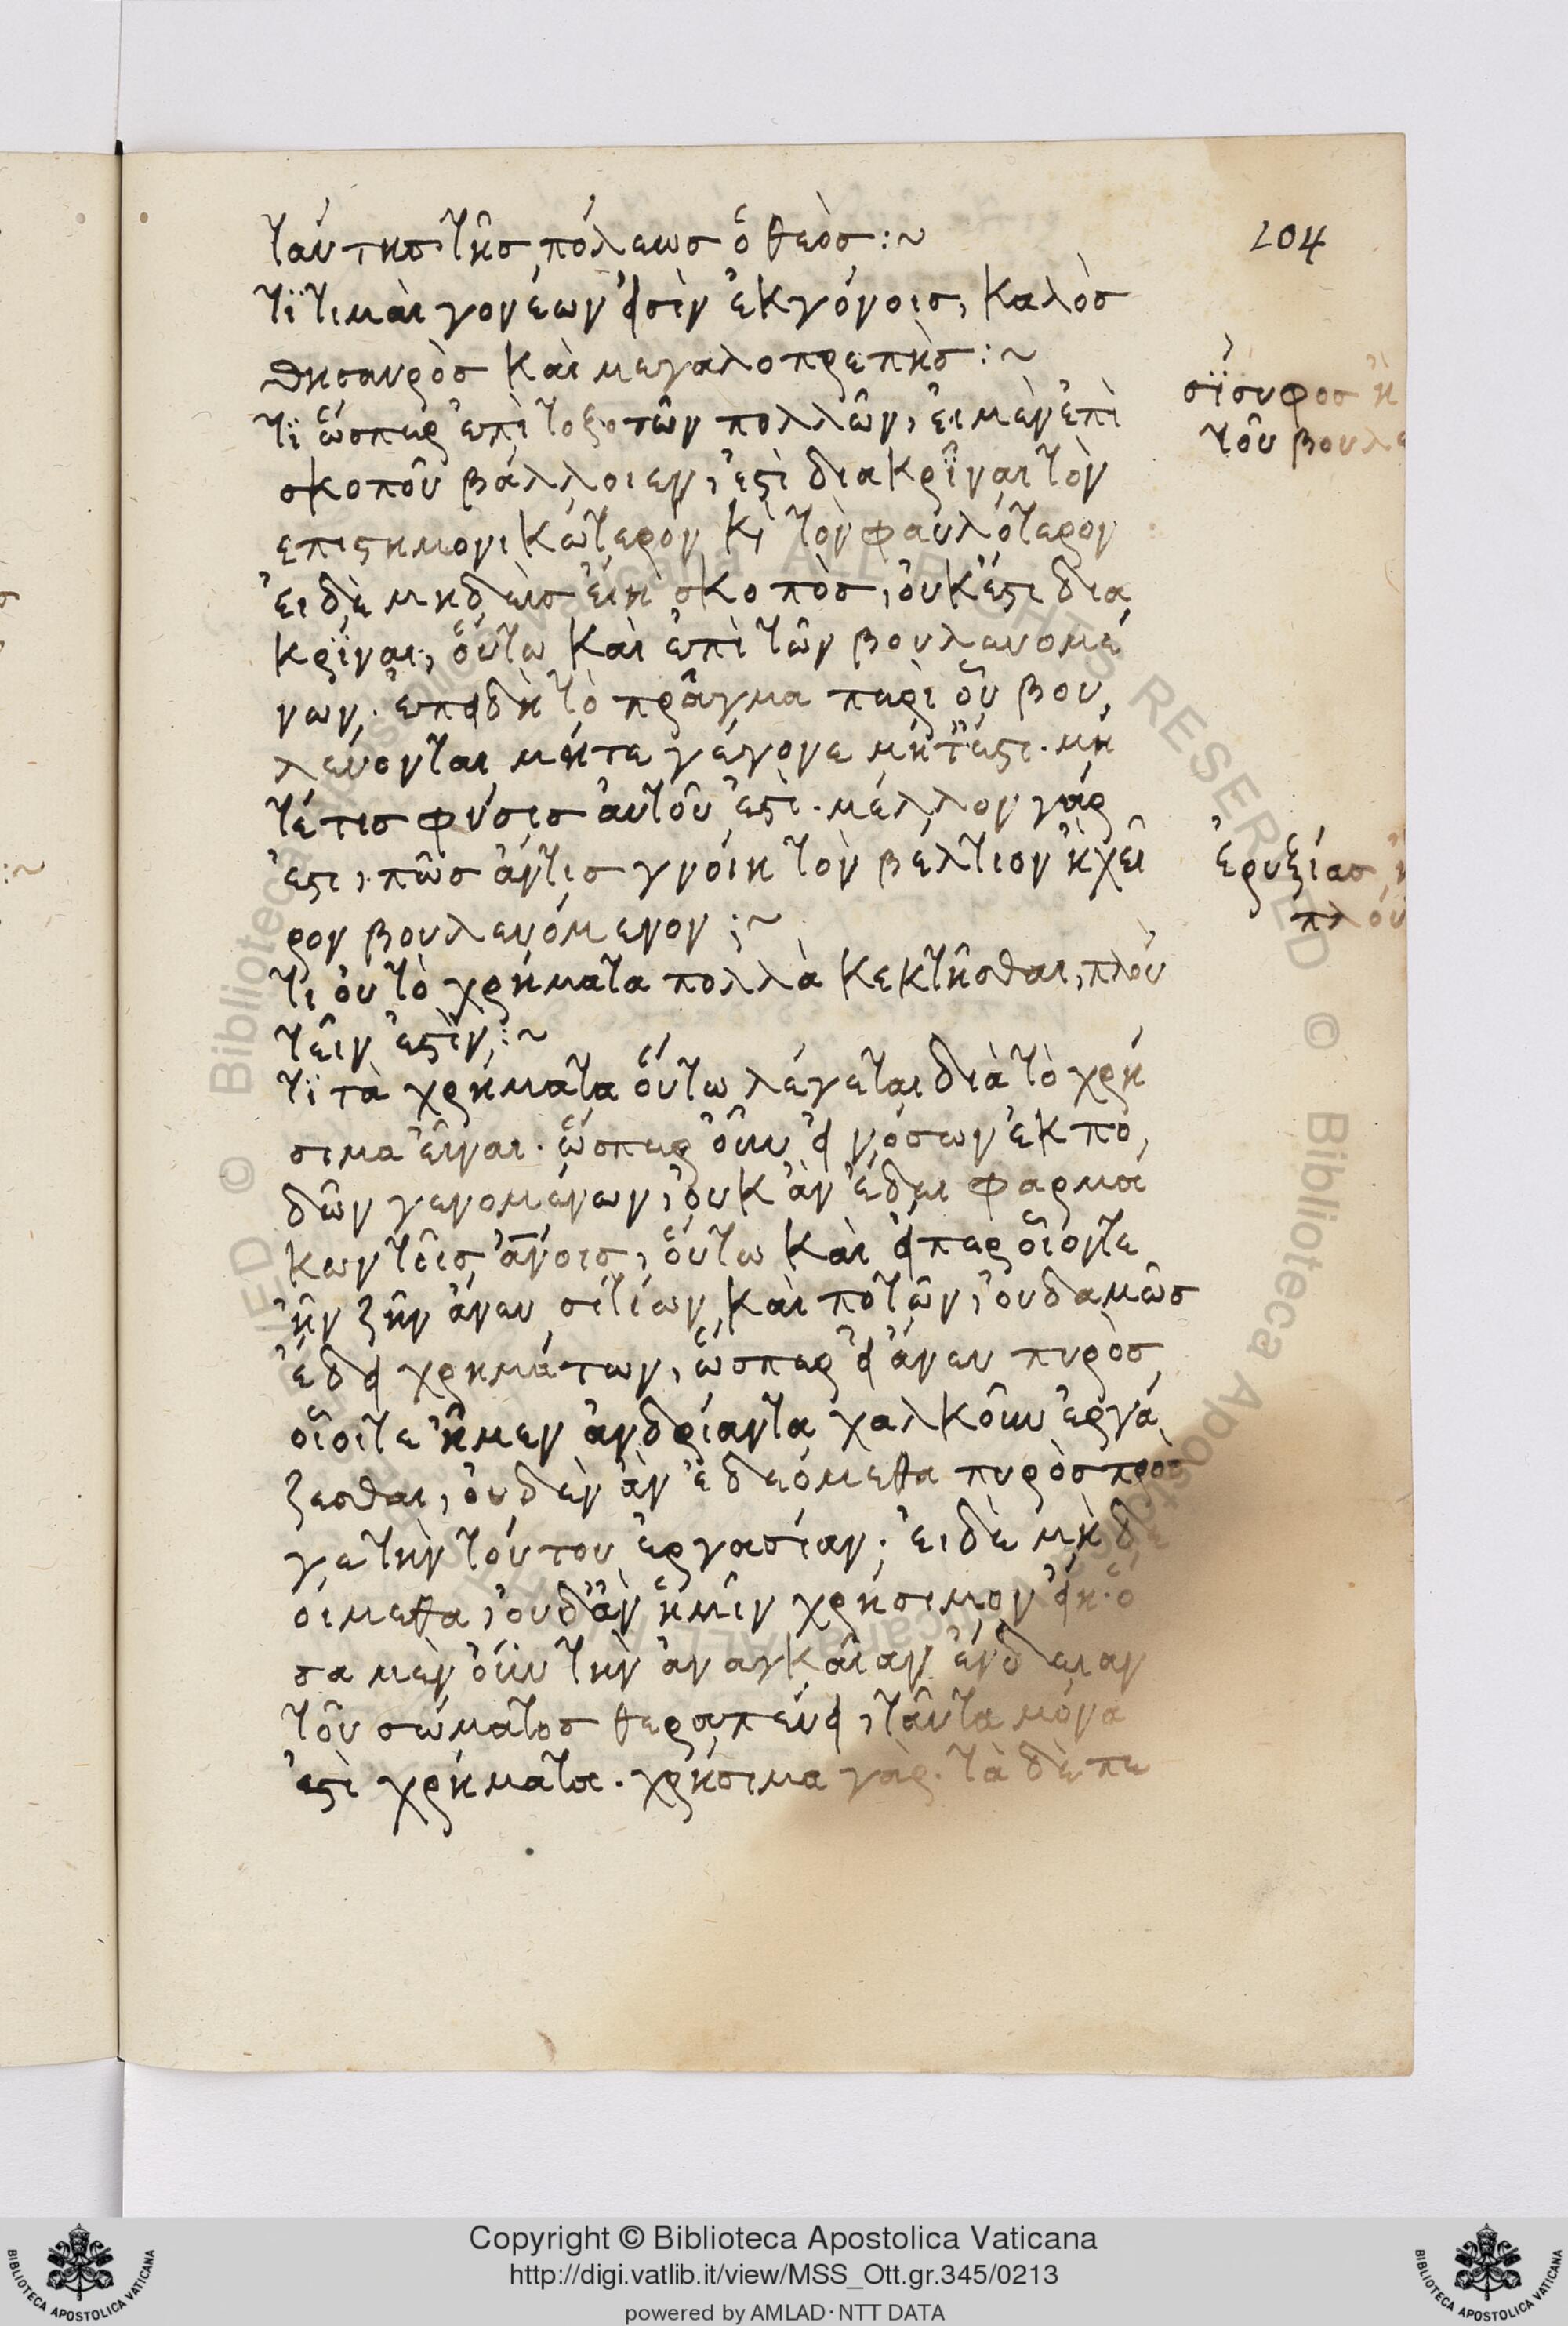 204
ταύτης τῆς πόλεως ὁ θεὸς :~
τϊ τιμαὶ γονέων εἰσὶν ἐκγόνοις, καλὸς
θησαυρὸς καὶ μεγαλοπρεπὴς :~
σΐσυφος ἢ
τοῦ βουλε
τϊ ὥσπερ ἐπὶ τοξοτῶν πολλῶν, εἰ μὲν ἐπὶ
σκοποῦ βάλλοιεν, ἐστὶ διακρῖναι τὸν
επιστημονικώτερον κ τὸν φαυλότερον
εἰ δὲ μηδεὶς εἴη σκοπὸς, οὐκ ἔστι δια
κρῖναι, οὕτω καὶ ἐπὶ τῶν βουλευομέ
νων. ἐπειδὴ τὸ πρᾶγμα περὶ οὗ βου
λεύονται μήτε γέγονε μήτ' ἔστι. μή
τέ τις φύσις αὐτοῦ ἐστὶ. μέλλον γάρ
ἐστι, πῶς ἄν τις γνοίη τὸν βέλτιον ἢ χεῖ
ρον βουλευόμενον ;~
ἐρυξίας ἢ
πλού
τι οὐ τὸ χρήματα πολλὰ κεκτῆσθαι, πλου
τεῖν ἐστὶν :~
τϊ τὰ χρήματα οὕτω λέγεται διὰ τὸ χρή
σιμα εἶναι. ὥσπερ οὖν εἰ νόσων ἐκ πο
δῶν γενομένων, οὐκ ἂν ἔδει φαρμά
κων τοῖς ἀνοις, οὕτω καὶ εἴπερ οἷόν τε
ἦν ζῆν ἄνευ σιτίων καὶ ποτῶν, οὐδαμῶς
ἔδει χρημάτων, ὥσπερ εἰ ἄνευ πυρὸς
οἷοί τε ἦμεν ἀνδριάντα χαλκοῦν ἐργά
ζεσθαι, οὐδὲν ἂν ἐδεόμεθα πυρὸς πρός
γε τὴν τούτου ἐργασίαν. εἰ δὲ μὴ δε
οίμεθα, οὐδ' ἂν ἡμῖν χρήσιμον εἴη. ὅ
σα μὲν οὖν τὴν ἀναγκαίαν ἔνδειαν
τοῦ σώματος θεραπεύει, ταῦτα μόνα
ἐστὶ χρήματα. χρήσιμα γάρ. τὰ δὲ πε
Copyright © Biblioteca Apostolica Vaticana
http://digi.vatlib.it/view/MSS_Ott.gr.345/0213
powered by AMLAD·NTT DATA